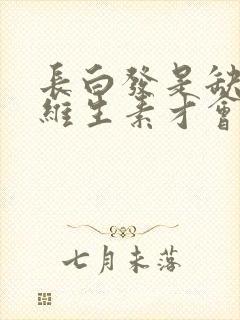 長白發是缺
維生素才會
七月未落